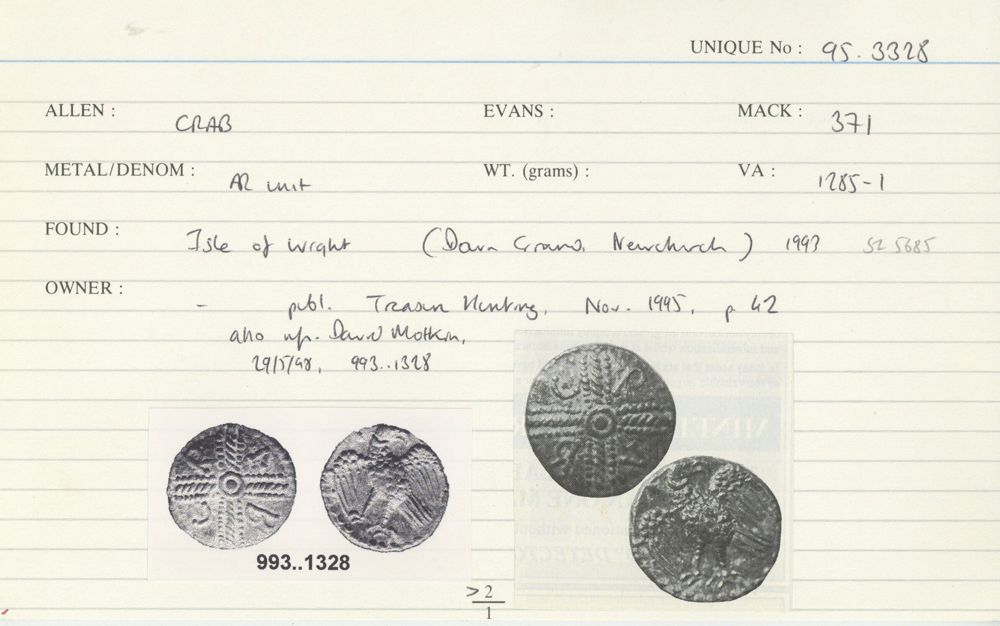 UNIQUE No : 95.3328
ALLEN : CRAB EVANS : MACK : 371
METAL/DENOM : AR unit WT. (grams) : VA : 1285-1
FOUND : Isle of Wight ( Newchurch ) 1993 SZ 5685
OWNER : - publ. Treasure Hunting, Nov. 1995, p. 42
also inf. David Motkin,
29/5/98, 993..1328
993..1328
>2
1